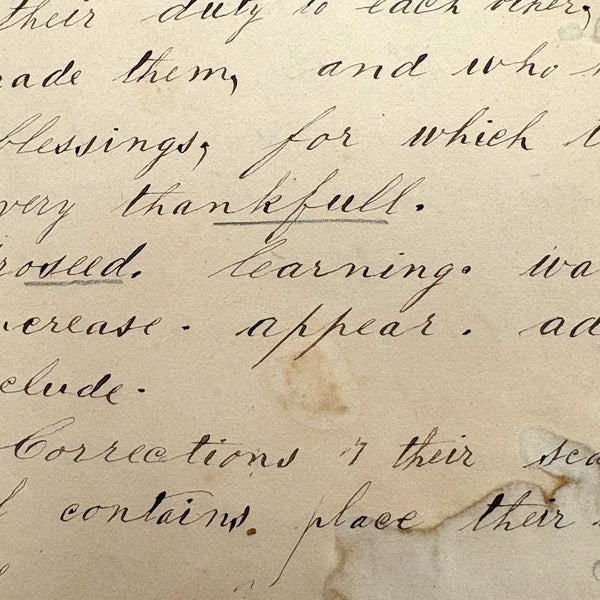 their duty to each other,
made them, and who
blessings, for which
very thankfull.
roseed. learning. wa
ncrease. appear. ad
clude.
Corrections 7 their sea
contains place their